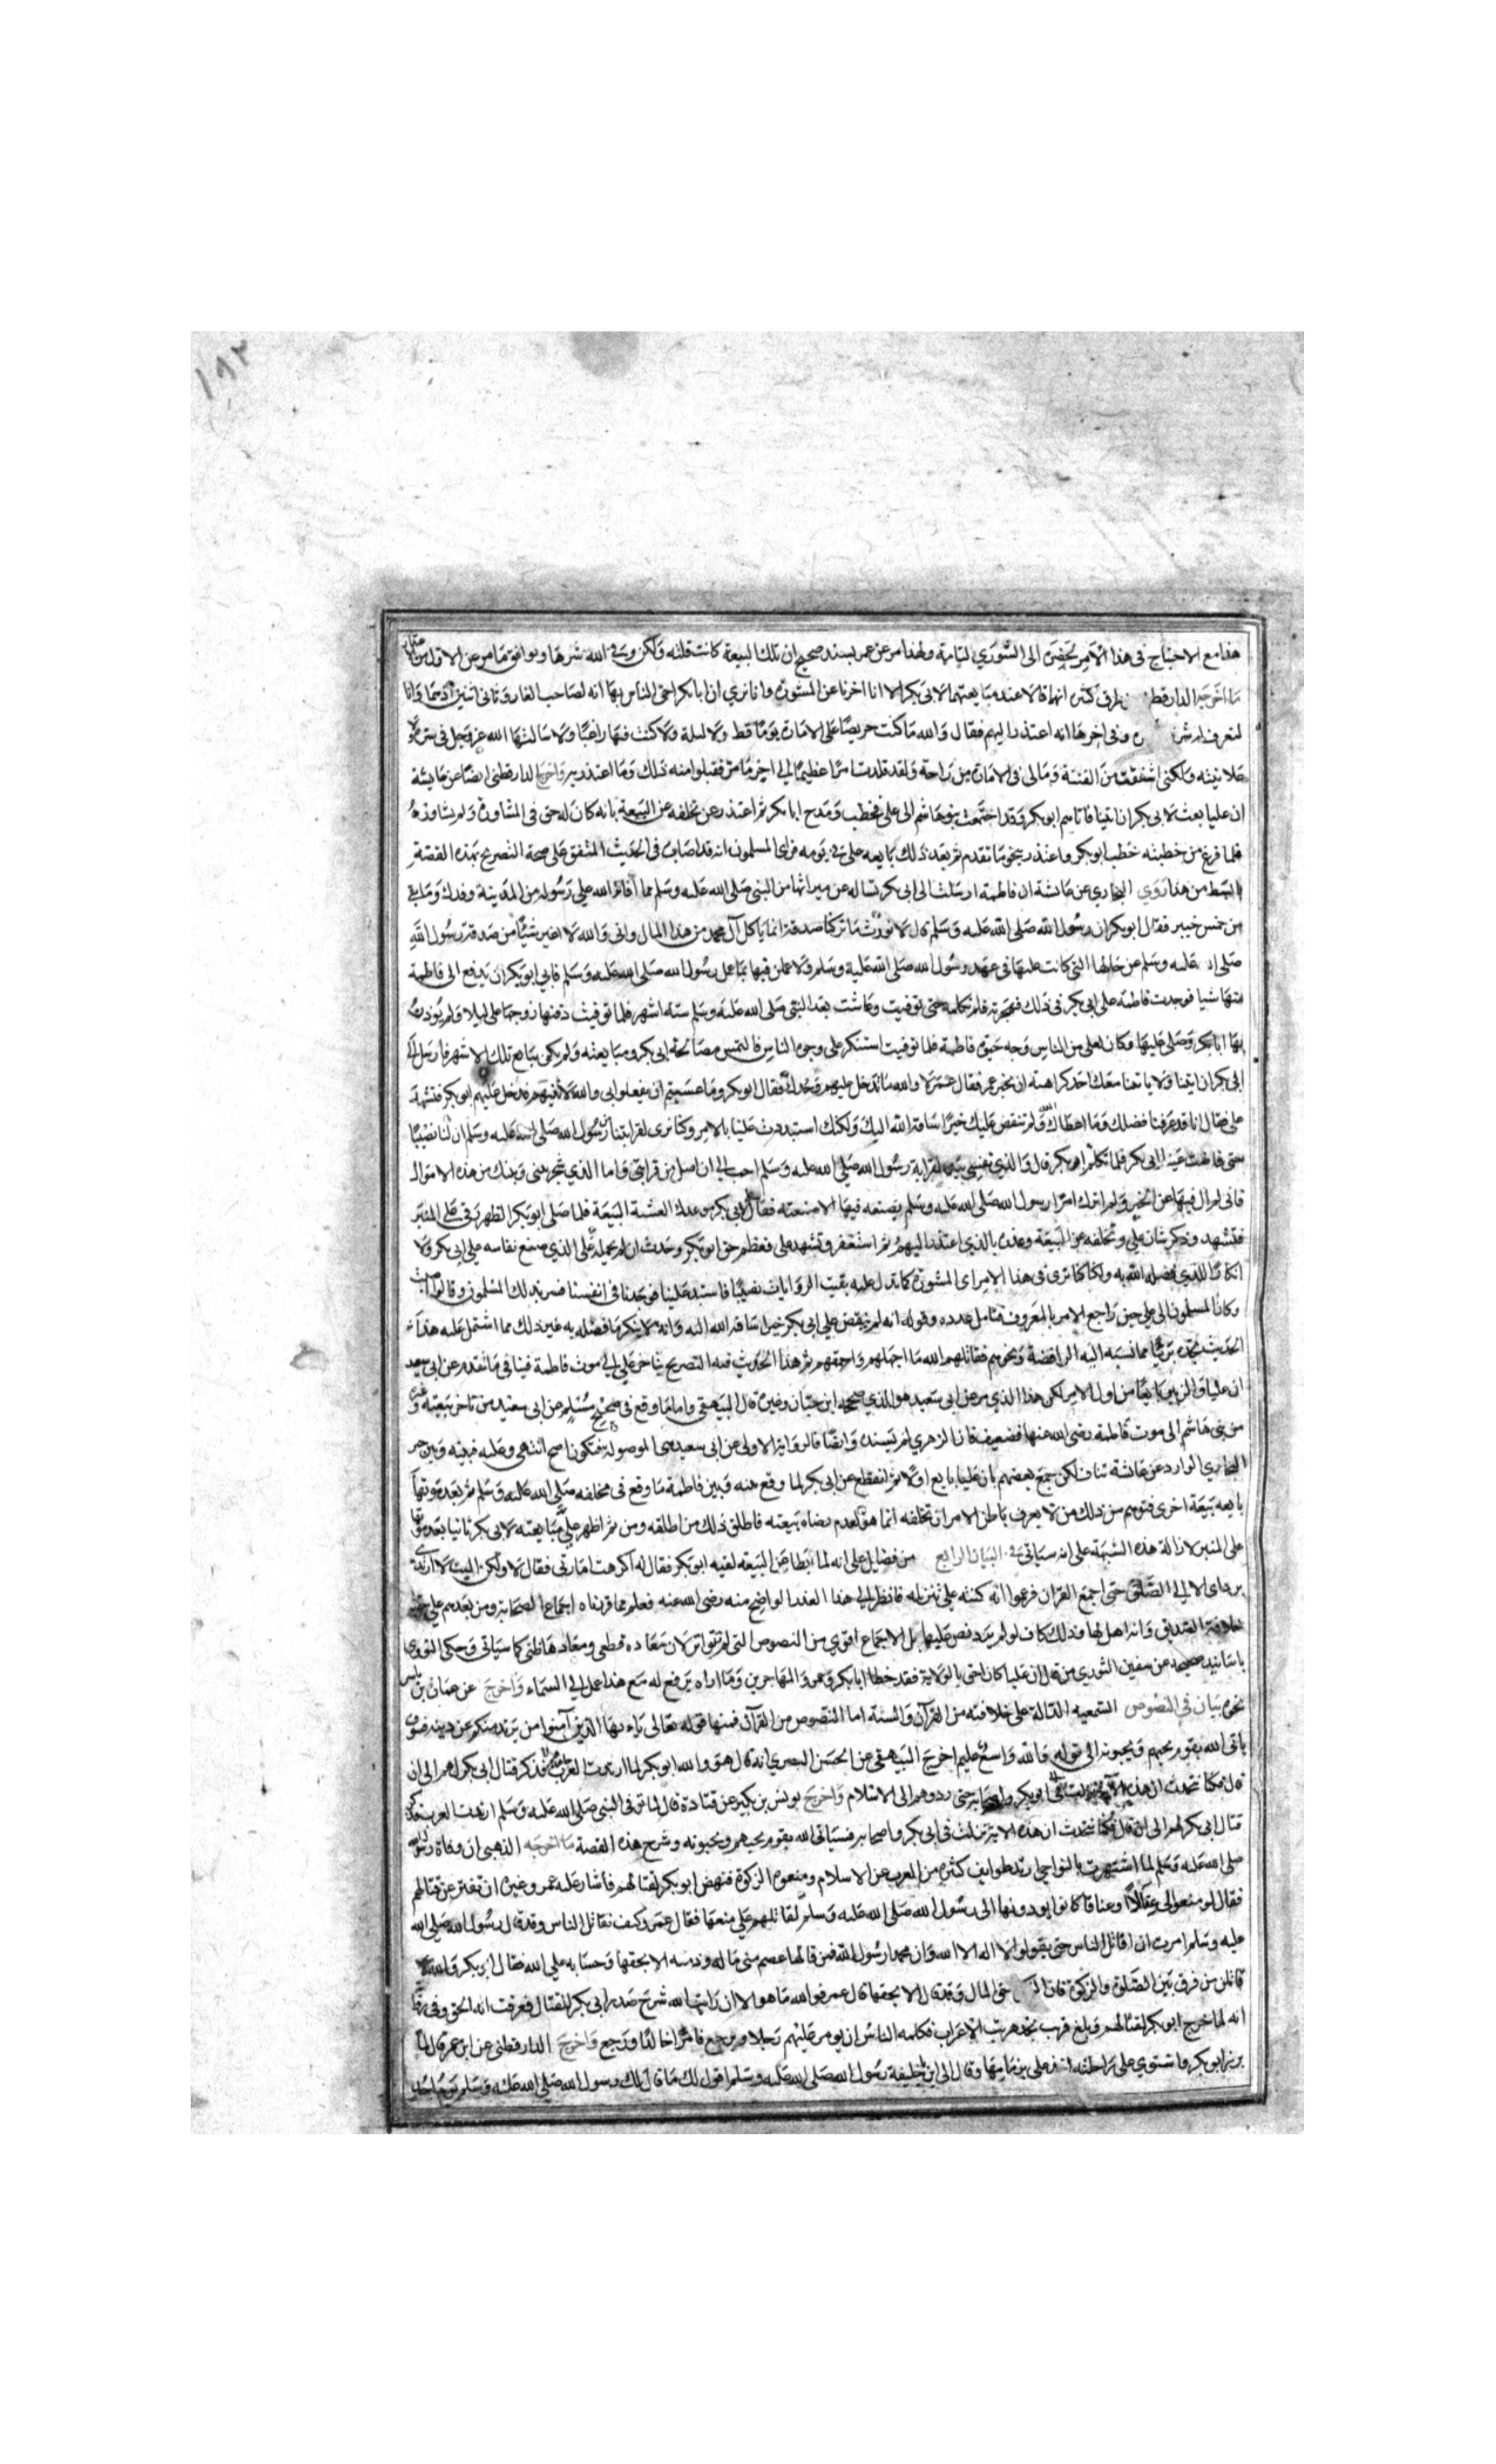 ١٩٢
هذا مع الاحتياج في هذا الامر لحضرة الى الشورى التامة ولهذا مر عن عمر بسند صحيح ان تلك البيعة كانت فلتة ولكن وقى الله شرها ويوافق ما مر عن الاول من
ما اخرجه الدارقطني من طرق كثيرة انهما قالا عند مبايعتهما لابي بكر الا انا اخرنا عن المشورة وانا نرى ان ابا بكر احق الناس بها انه لصاحب الغار وثاني اثنين وانا
لنعرف له شرفه وفي اخرها انه اعتذر اليهم فقال والله ما كنت حريصا على الامارة يوما قط ولا ليلة ولا كنت فيها راغبا ولا سالتها الله عز وجل في سر ولا
علانية ولكني اشفقت من الفتنة وما لي في الامارة من راحة ولقد قلدت امرا عظيما الى اخر ما مر فقبلوا منه ذلك وما اعتذر به واخرج الدارقطني ايضا عن عايشة
ان عليا بعث لابي بكر ان ائتنا فاتاهم ابو بكر وقد اجتمعت بنو هاشم الى علي فخطب ومدح ابا بكر ثم اعتذر عن تخلفه عن البيعة بانه كان له حق في المشاورة ولم يشاوروه
فلما فرغ من خطبته خطب ابو بكر واعتذر بنحو ما تقدم ثم بعد ذلك بايعه علي في يومه فراى المسلمون انه قد اصاب في الحديث المتفق على صحة التصريح بهذه القصة
ابسط من هذا روى البخاري عن عائشة ان فاطمة ارسلت الى ابي بكر تساله عن ميراثها من النبي صلى الله عليه وسلم مما افاء الله على رسوله من المدينة وفدك وما بقي
من خمس خيبر فقال ابو بكر ان رسول الله صلى الله عليه وسلم قال لا نورث ما تركنا صدقة انما ياكل آل محمد من هذا المال واني والله لا اغير شيئا من صدقة رسول الله
صلى الله عليه وسلم عن حالها التي كانت عليها في عهد رسول الله صلى الله عليه وسلم ولاعملن فيها بما عمل رسول الله صلى الله عليه وسلم فابى ابو بكر ان يدفع الى فاطمة
منها شيا فوجدت فاطمة على ابي بكر في ذلك فهجرته فلم تكلمه حتى توفيت وعاشت بعد النبي صلى الله عليه وسلم ستة اشهر فلما توفيت دفنها زوجها علي ليلا ولم يؤذن
بها ابا بكر وصلى عليها وكان لعلي من الناس وجه حيوة فاطمة فلما توفيت استنكر علي وجوه الناس فالتمس مصالحة ابي بكر ومبايعته ولم يكن بايع تلك الاشهر فارسل
الى ابي بكر ان ايتنا ولا ياتنا معك احد كراهية ان يحضر عمر فقال عمر لا والله ما تدخل عليهم وحدك فقال ابو بكر وما عسيتم ان يفعلوا بي والله لاتينهم فدخل عليهم ابو بكر فتشهد
علي فقال انا قد عرفنا فضلك وما اعطاك الله ولم ننفس عليك خيرا ساقه الله اليك ولكنك استبددت علينا بالامر وكنا نرى لقرابتنا من رسول الله صلى الله عليه وسلم ان لنا نصيبا
حتى فاضت عينا ابي بكر فلما تكلم ابو بكر قال والذي نفسي بيده لقرابة رسول الله صلى الله عليه وسلم احب الي ان اصل من قرابتي واما الذي شجر بيني وبينكم من هذه الاموال
فاني لم آل فيها عن الخير ولم اترك امرا رسول الله صلى الله عليه وسلم يصنعه فيها الا صنعته فقال علي لابي بكر موعدك العشية البيعة فلما صلى ابو بكر الظهر رقى على المنبر
فتشهد وذكر شان علي وتخلفه عن البيعة وعذره بالذي اعتذر اليهم ثم استغفر وتشهد علي فعظم حق ابو بكر وحدث انه لم يحمله على الذي صنع نفاسه على ابي بكر ولا
انكارا للذي فضله الله به ولكنا كنا نرى في هذا الامر اي المشورة كما تدل عليه بقية الروايات نصيبا فاستبد علينا فوجدنا في انفسنا فسر بذلك المسلمون وقالوا اصبت
وكان المسلمون الى علي حين راجع الامر بالمعروف فتامل عذره وقوله انه لم ينفس على ابي بكر خيرا ساقه الله اليه وانه لا ينكر ما فضله به غير ذلك مما اشتمل عليه هذا
الحديث تجده بريا مما نسبه اليه الرافضة ونحوهم فقاتلهم الله ما اجهلهم واحمقهم ثم هذا الحديث فيه التصريح بتاخر علي الى موت فاطمة فينافي ما تقدم عن ابي سعيد
ان عليا والزبير بايعا من اول الامر لكن هذا الذي مر عن ابي سعيد هو الذي صححه ابن حبان وغيره قال البيهقي واما ما وقع في صحيح مسلم عن ابي سعيد من تاخر بيعته وغيره
من بني هاشم الى موت فاطمة رضي الله عنها فضعيف فان الزهري لم يسنده وايضا فالرواية الاولى عن ابي سعيد هي الموصولة فتكون اصح انتهى وعليه فبينه وبين خبر
البخاري الوارد عن عائشة تناف لكن جمع بعضهم بان عليا بايع اولا ثم انقطع عن ابي بكر لما وقع بينه وبين فاطمة ما وقع في مخلفه صلى الله عليه وسلم ثم بعد موتها
بايعه بيعة اخرى فتوهم من ذلك من لا يعرف باطن الامر ان تخلفه انما هو لعدم رضاه ببيعته فاطلق ذلك من اطلقه ومن ثم اظهر علي مبايعته لابي بكر ثانيا بعد موتها
على المنبر لازالة هذه الشبهة على انه سياتي في البيان الرابع من فضايل علي انه لما ابطا عن البيعة لقيه ابو بكر فقال له اكرهت امارتي فقال لا ولكن اليت لا ارتدي
بردائي الا الى الصلوة حتى اجمع القرآن فزعموا انه كتبه على تنزيله فانظر الى هذا العذر الواضح منه رضي الله عنه فعلم مما قررناه اجماع الصحابة ومن بعدهم على حقية
خلافة الصديق وانه اهل لها وذلك كاف لو لم يرد نص عليها بل الاجماع اقوى من النصوص التي لم تتواتر لان مفاده قطعي ومفادها ظني كما سياتي وحكى النووي
باسانيد صحيحة عن سفين الثوري من قال ان عليا كان احق بالولاية فقد خطا ابا بكر وعمر والمهاجرين وما اراه يرفع له مع هذا عمل الى السماء واخرج عن عمار بن ياسر
نحوه بيان في النصوص السمعية الدالة على خلافته من القرآن والسنة اما النصوص من القرآن فمنها قوله تعالى ياءيها الذين آمنوا من يرتد منكم عن دينه فسوف
ياتي الله بقوم يحبهم ويحبونه الى قوله والله واسع عليم اخرج البيهقي عن الحسن البصري انه قال هو والله ابو بكر لما ارتدت العرب فذكر قتال ابي بكر لهم الى ان
قال فكنا نتحدث ان هذه الآية نزلت في ابو بكر واصحابه حتى ردوهم الى الاسلام واخرج يونس بن بكير عن قتادة قال لما توفي النبي صلى الله عليه وسلم ارتدت العرب فذكر
قتال ابي بكر لهم الى ان قال فكنا نتحدث ان هذه الاية نزلت في ابي بكر واصحابه فسياتي الله بقوم يحبهم ويحبونه وشرح هذه القصة ما اخرجه الذهبي ان وفاة رسول الله
صلى الله عليه وسلم لما اشتهرت بالنواحي ارتد طوايف كثيرة من العرب عن الاسلام ومنعوا الزكوة فنهض ابو بكر لقتالهم فأشار عليه عمر وغيره ان يفتر عن قتالهم
فقال لو منعوني عقالا او عناقا كانوا يودونها الى رسول الله صلى الله عليه وسلم لقاتلهم على منعها فقال عمر وكيف نقاتل الناس وقد قال رسول الله صلى الله
عليه وسلم امرت ان اقاتل الناس حتى يقولوا لا اله الا الله وان محمدا رسول الله فمن قالها عصم مني ماله ودمه الا بحقها وحسابه على الله فقال ابو بكر والله
لاقاتلن من فرق بين الصلوة والزكوة فان الزكوة حق المال وقد قال الا بحقها قال عمر فوالله ما هو الا ان رايت الله شرح صدر ابي بكر للقتال فعرفت انه الحق وفي رواية
انه لما خرج ابو بكر لقتالهم وبلغ قرب نجد هربت الاعراب فكلمه الناس ان يومر عليهم رجلا ويرجع فامر خالدا ورجع واخرج الدارقطني عن ابن عمر قال لما
برز ابو بكر واستوى على راحلته اخذ علي بزمامها وقال الى اين يا خليفة رسول الله صلى الله عليه وسلم اقول لك ما قال لك رسول الله صلى الله عليه وسلم يوم احد